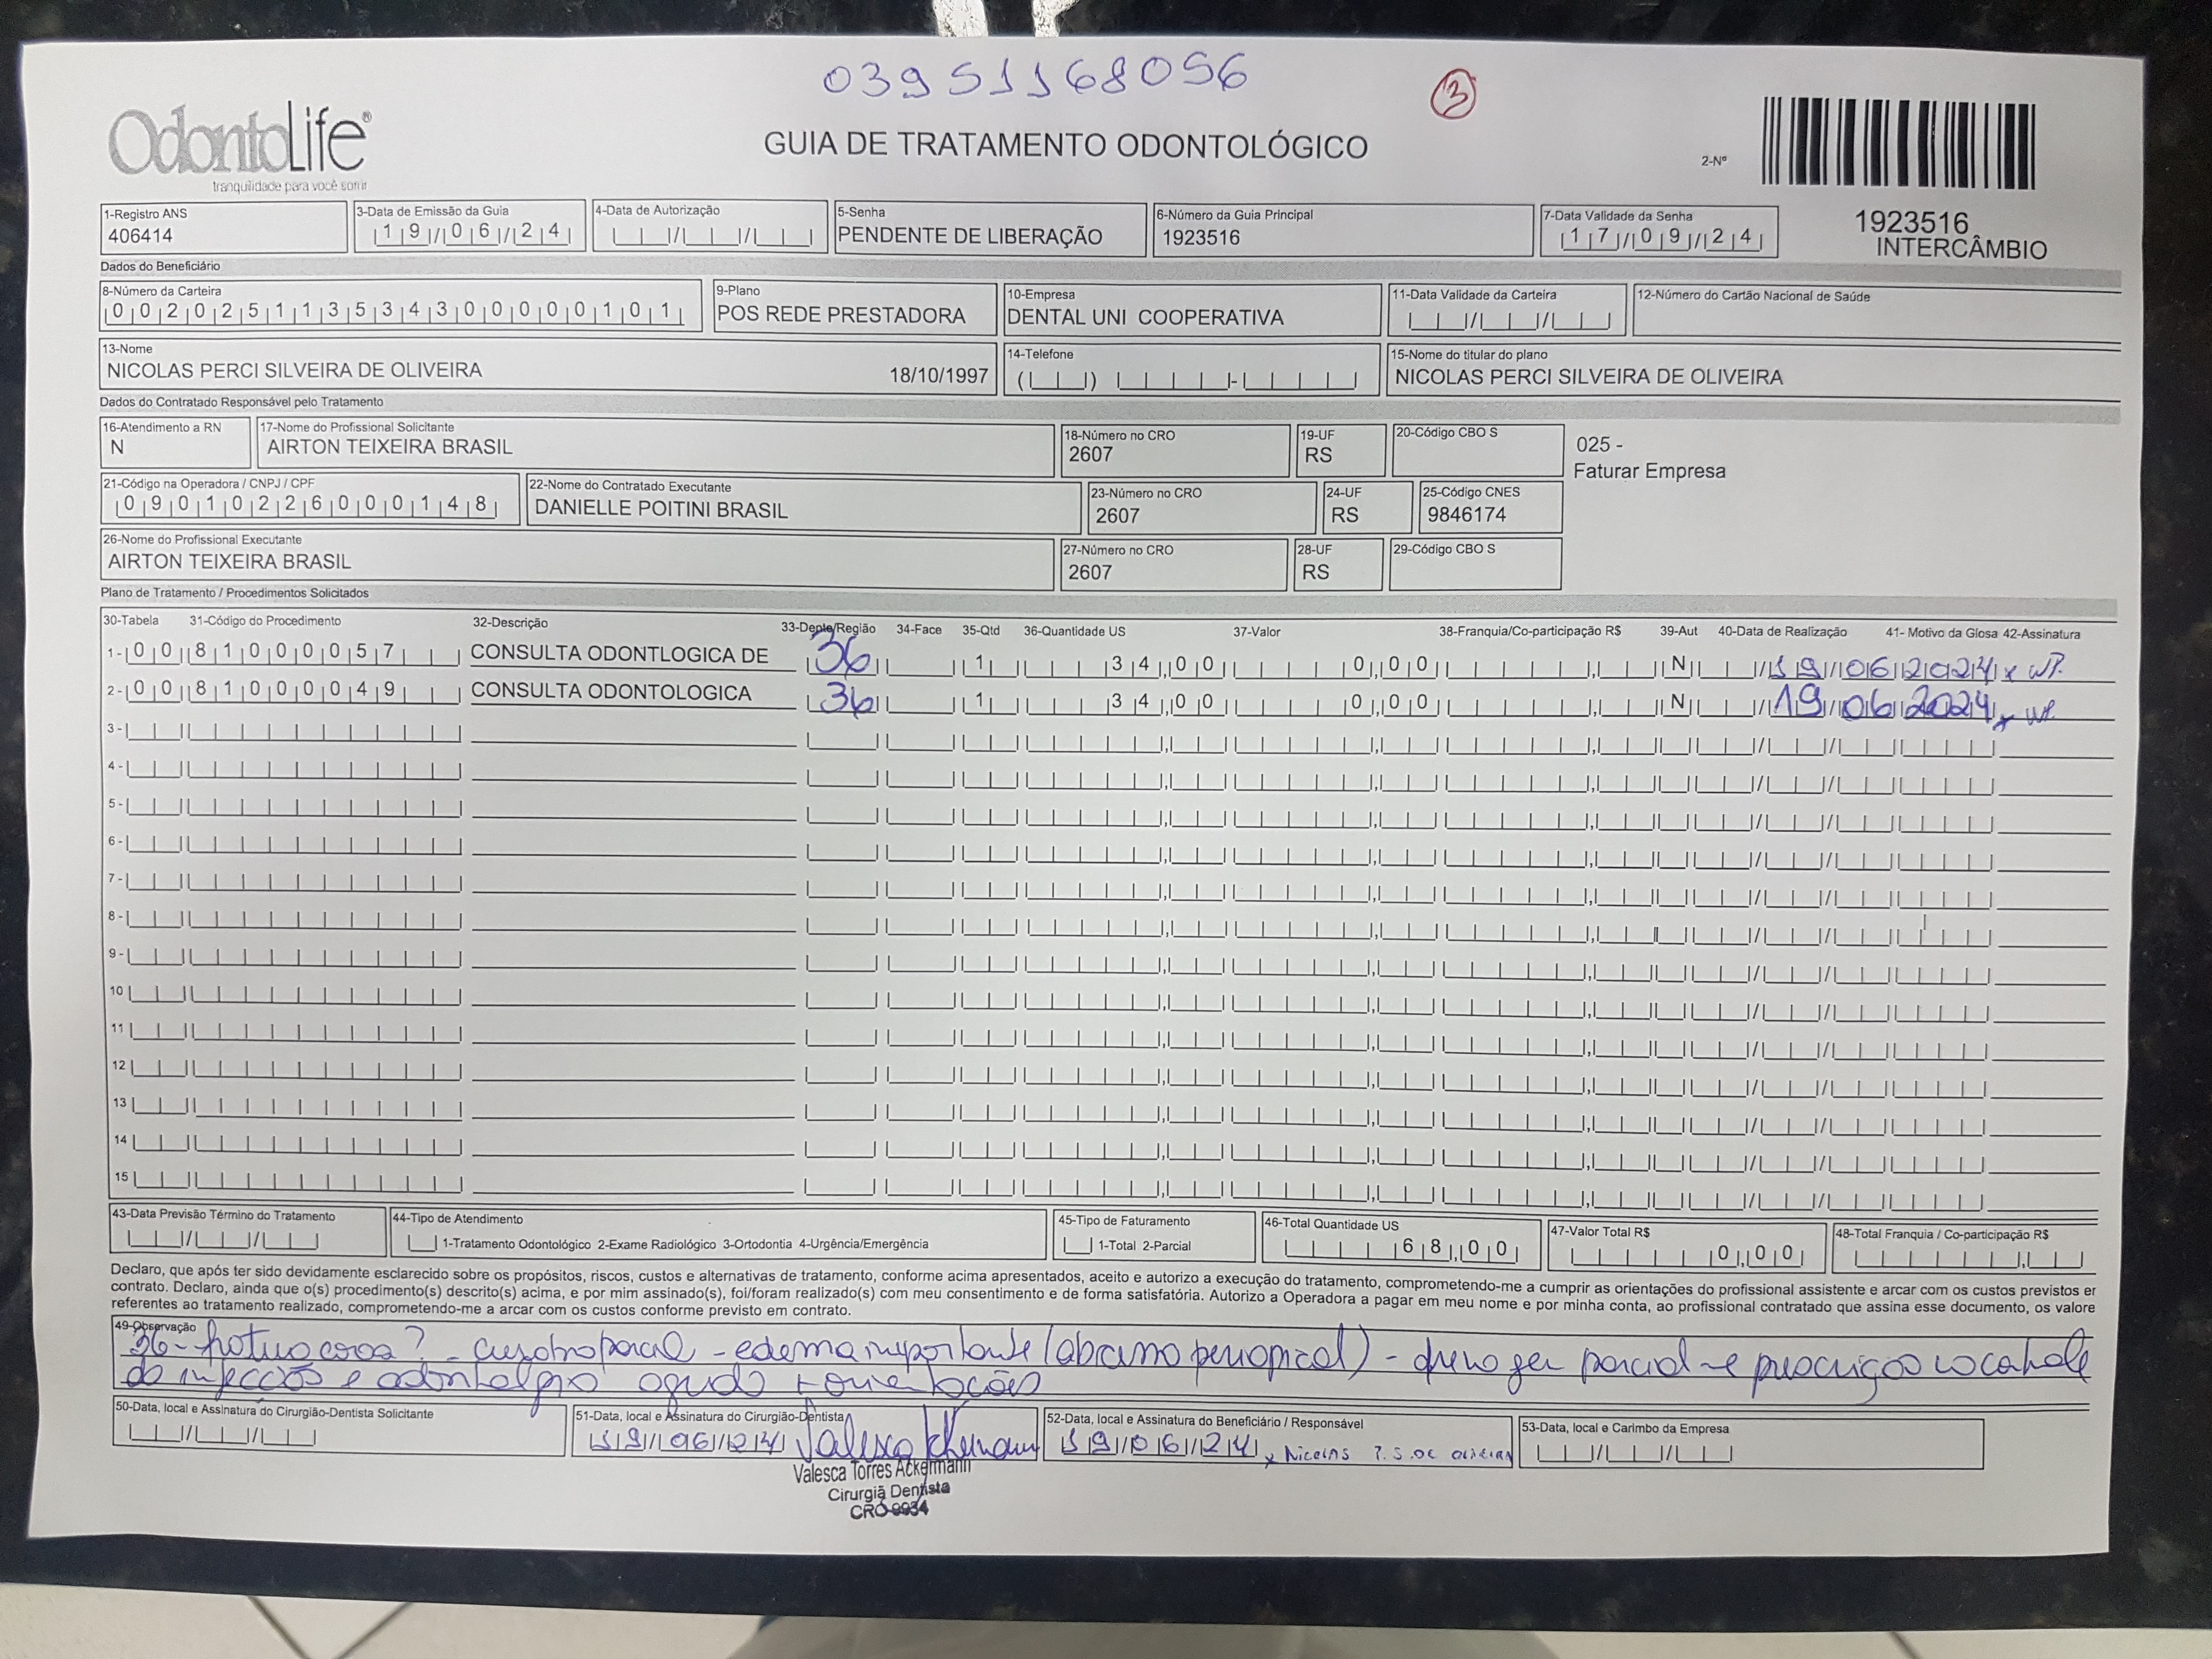 03951168056
3
OdontoLife®
tranquilidade para você sorrir
GUIA DE TRATAMENTO ODONTOLÓGICO
2-Nº
1923516
INTERCÂMBIO
1-Registro ANS
406414
3-Data de Emissão da Guia
19/06/24
4-Data de Autorização
5-Senha
PENDENTE DE LIBERAÇÃO
6-Número da Guia Principal
1923516
7-Data Validade da Senha
17/09/24
Dados do Beneficiário
8-Número da Carteira
002025113534300000101
9-Plano
POS REDE PRESTADORA
10-Empresa
DENTAL UNI COOPERATIVA
11-Data Validade da Carteira
12-Número do Cartão Nacional de Saúde
13-Nome
NICOLAS PERCI SILVEIRA DE OLIVEIRA 18/10/1997
14-Telefone
15-Nome do titular do plano
NICOLAS PERCI SILVEIRA DE OLIVEIRA
Dados do Contratado Responsável pelo Tratamento
16-Atendimento a RN
N
17-Nome do Profissional Solicitante
AIRTON TEIXEIRA BRASIL
18-Número no CRO
2607
19-UF
RS
20-Código CBO S
025 -
Faturar Empresa
21-Código na Operadora / CNPJ / CPF
09010226000148
22-Nome do Contratado Executante
DANIELLE POITINI BRASIL
23-Número no CRO
2607
24-UF
RS
25-Código CNES
9846174
26-Nome do Profissional Executante
AIRTON TEIXEIRA BRASIL
27-Número no CRO
2607
28-UF
RS
29-Código CBO S
Plano de Tratamento / Procedimentos Solicitados
30-Tabela 31-Código do Procedimento 32-Descrição 33-Dente/Região 34-Face 35-Qtd 36-Quantidade US 37-Valor 38-Franquia/Co-participação R$ 39-Aut 40-Data de Realização 41- Motivo da Glosa 42-Assinatura
1- 00 81000057 CONSULTA ODONTLOGICA DE 36 1 34,00 0,00 N 19/06/2024 x
2- 00 81000049 CONSULTA ODONTOLOGICA 36 1 34,00 0,00 N 19/06/2024 x
3-
4-
5-
6-
7-
8-
9-
10
11
12
13
14
15
43-Data Previsão Término do Tratamento
44-Tipo de Atendimento
1-Tratamento Odontológico 2-Exame Radiológico 3-Ortodontia 4-Urgência/Emergência
45-Tipo de Faturamento
1-Total 2-Parcial
46-Total Quantidade US
68,00
47-Valor Total R$
0,00
48-Total Franquia / Co-participação R$
Declaro, que após ter sido devidamente esclarecido sobre os propósitos, riscos, custos e alternativas de tratamento, conforme acima apresentados, aceito e autorizo a execução do tratamento, comprometendo-me a cumprir as orientações do profissional assistente e arcar com os custos previstos er
contrato. Declaro, ainda que o(s) procedimento(s) descrito(s) acima, e por mim assinado(s), foi/foram realizado(s) com meu consentimento e de forma satisfatória. Autorizo a Operadora a pagar em meu nome e por minha conta, ao profissional contratado que assina esse documento, os valore
referentes ao tratamento realizado, comprometendo-me a arcar com os custos conforme previsto em contrato.
49-Observação
36- coroa? - - edema importante (abcesso periapical) - parcial - e prescrição
da infecção e odontalgia aguda + orientações
50-Data, local e Assinatura do Cirurgião-Dentista Solicitante
51-Data, local e Assinatura do Cirurgião-Dentista
19/06/24 Valesca Ackermann
52-Data, local e Assinatura do Beneficiário / Responsável
19/06/24 x Nicolas P. S. DE OLIVEIRA
53-Data, local e Carimbo da Empresa
Valesca Torres Ackermann
Cirurgiã Dentista
CRO 9934